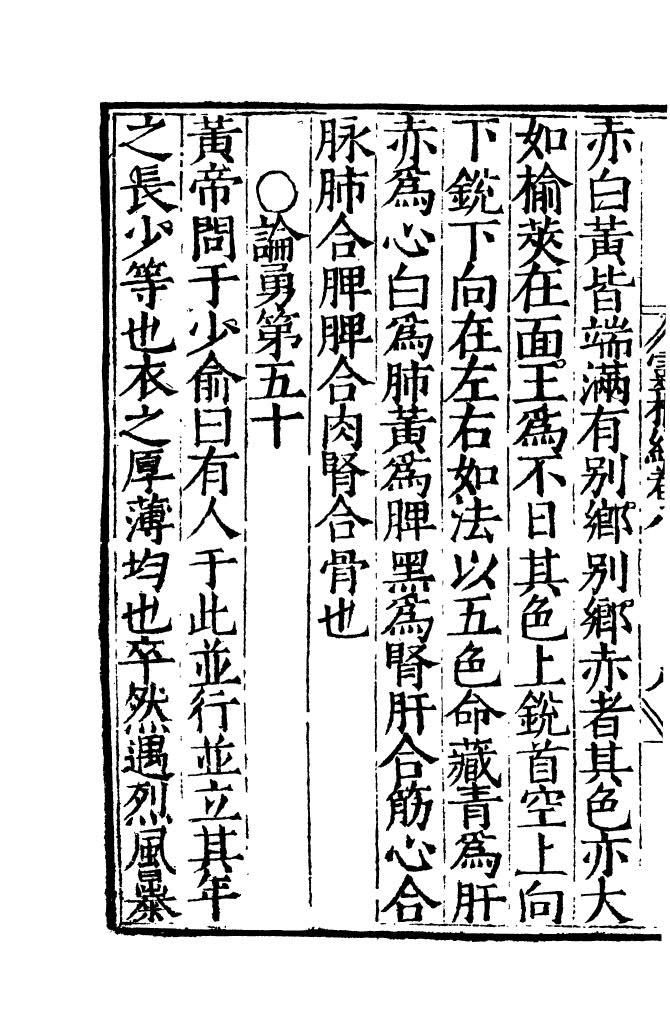 赤白黃皆端滿有别鄉别鄉赤者其色亦大
如榆莢在面王爲不日其色上銳首空上向
下銳下向在左右如法以五色命藏青爲肝
赤爲心白爲肺黃爲脾黑爲腎肝合筋心合
脉肺合脾脾合肉腎合骨也
○論勇第五十
黃帝問于少俞曰有人于此並行並立其年
之長少等也衣之厚薄均也卒然遇烈風暴